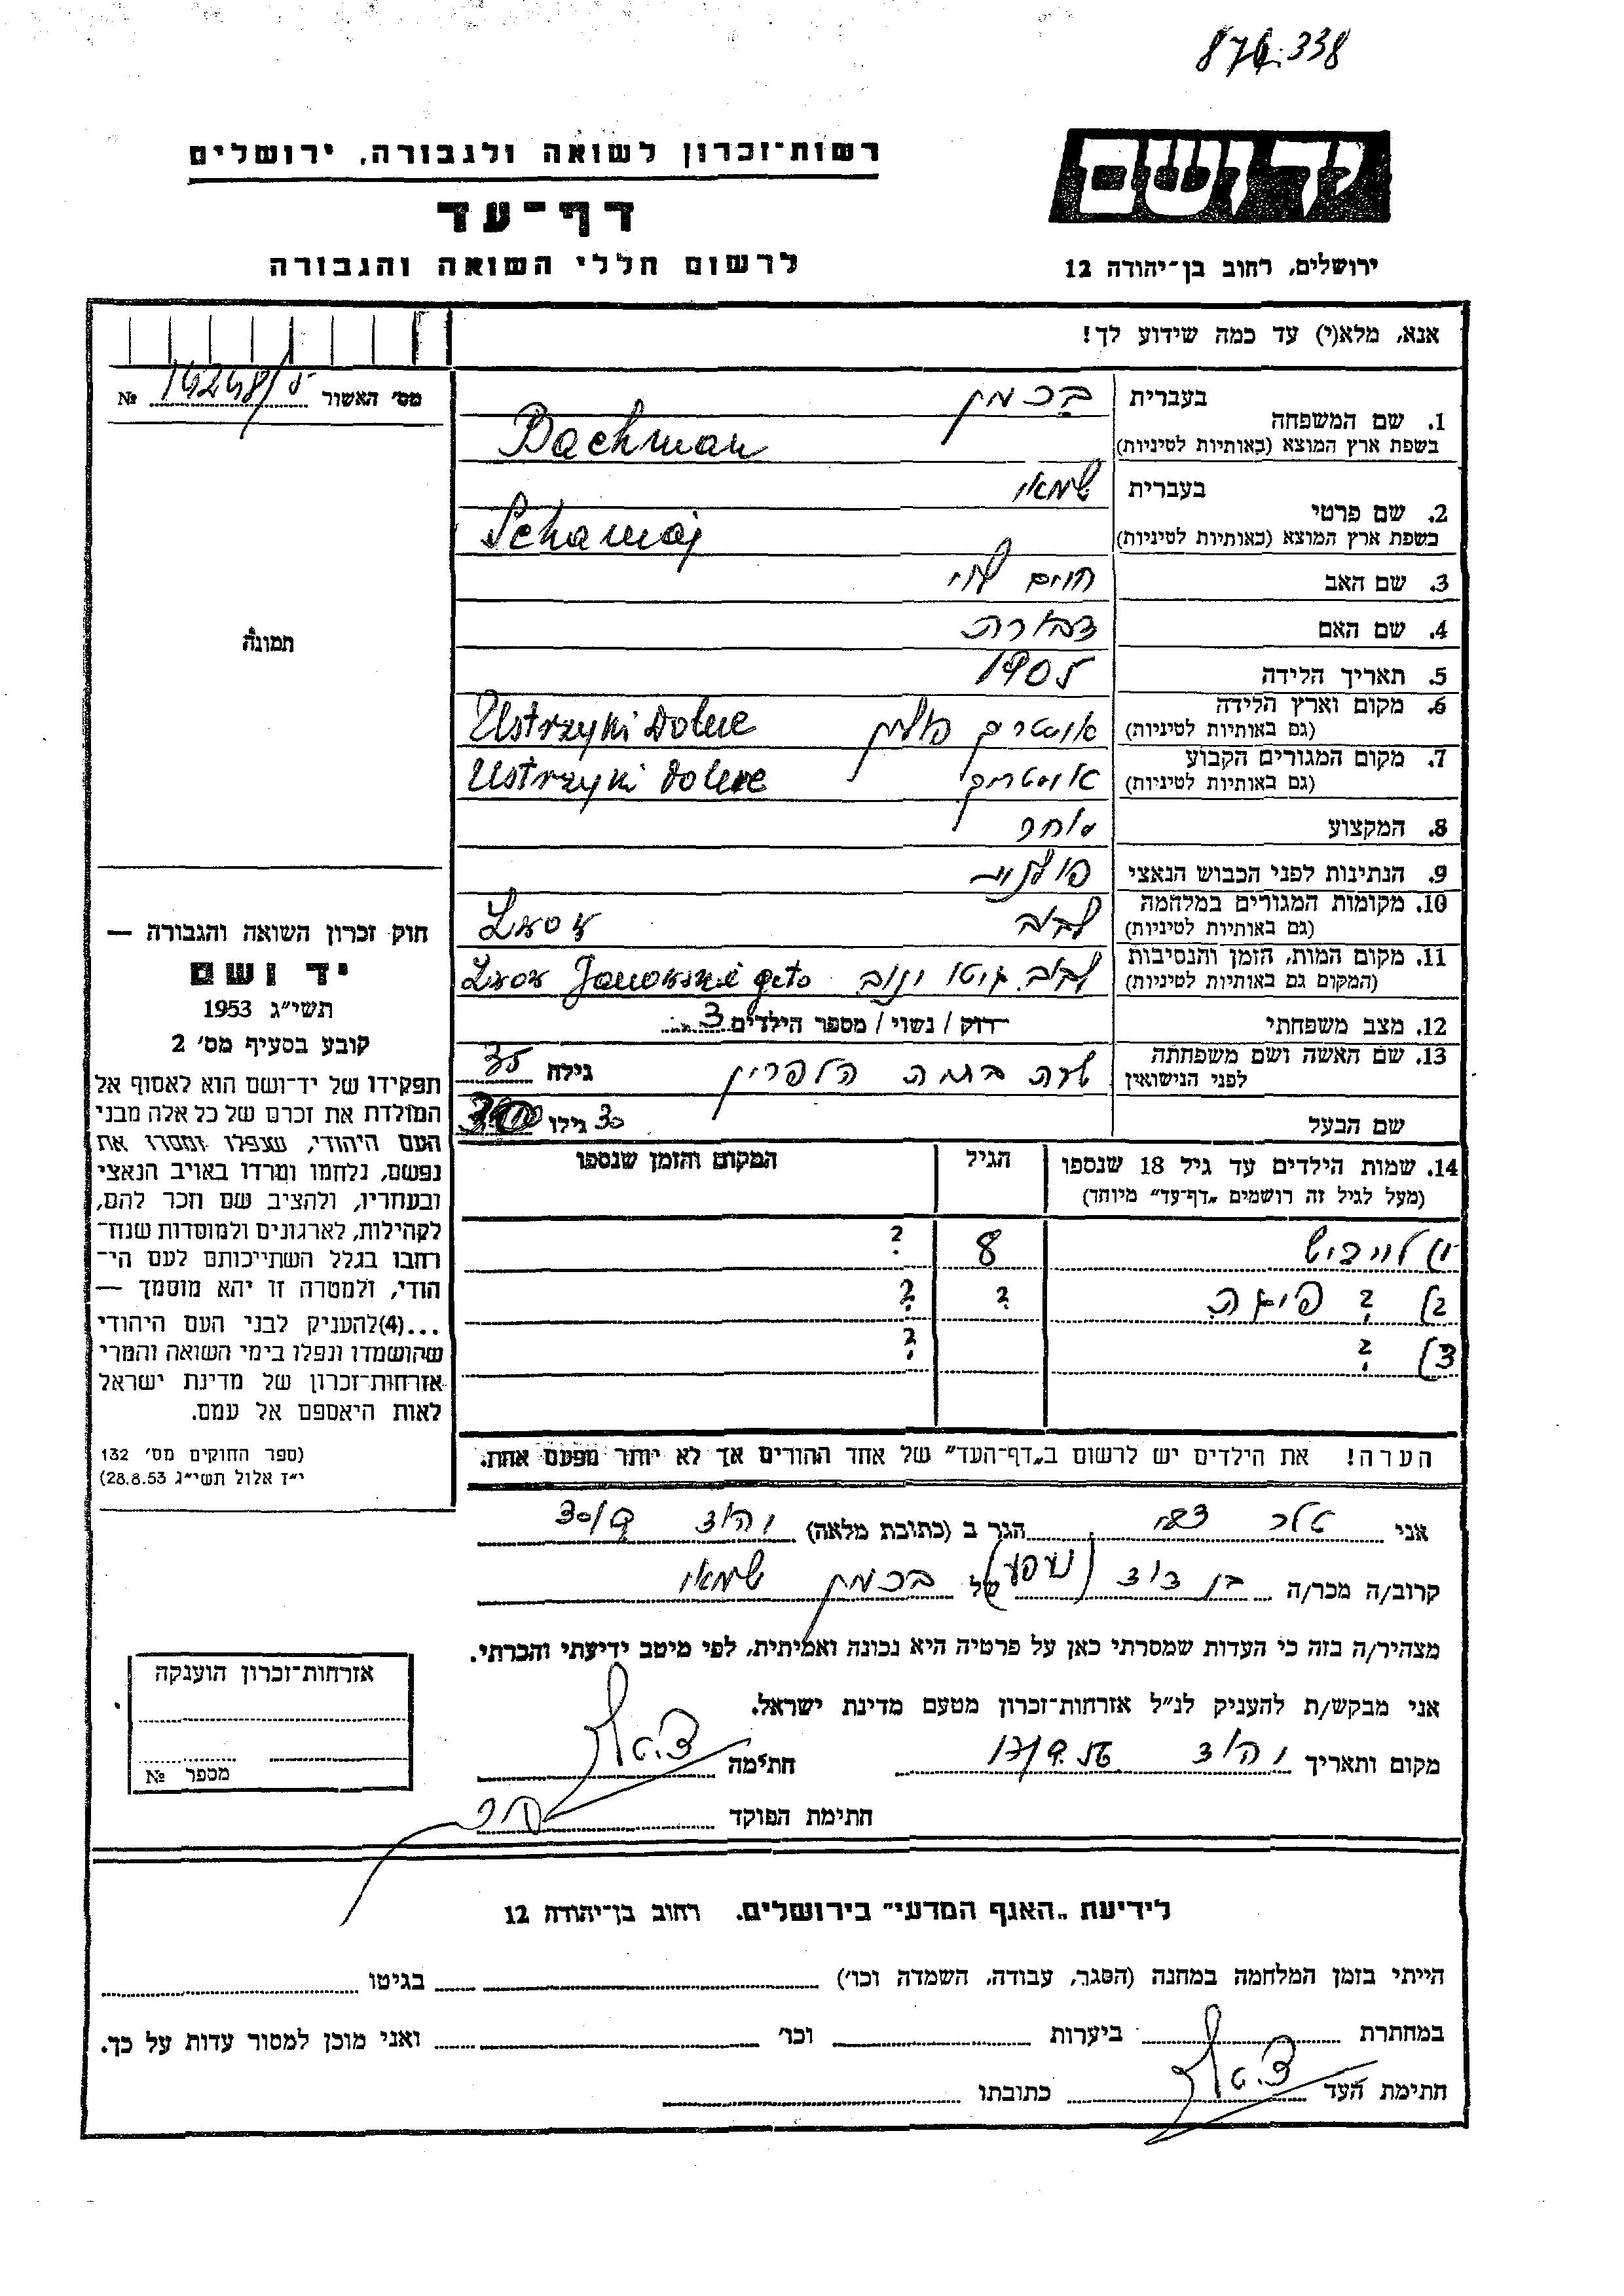 874.338
רשות-זכרון לשואה ולגבורה, ירושלים
יד ושם
דף-עד
לרשום חללי השואה והגבורה
ירושלים, רחוב בן-יהודה 12
אנא, מלא(י) עד כמה שידוע לך!
מס' האשור №
1. שם המשפחה בעברית בכמן
בשפת ארץ המוצא (באותיות לטיניות) Bachman
2. שם פרטי בעברית שמאי
בשפת ארץ המוצא (באותיות לטיניות) Schamaj
3. שם האב חיים
4. שם האם דבורה
5. תאריך הלידה 1905
6. מקום וארץ הלידה (גם באותיות לטיניות) פולין Ustrzyki Dolne
7. מקום המגורים הקבוע (גם באותיות לטיניות) Ustrzyki Dolne
8. המקצוע סוחר
9. הנתינות לפני הכבוש הנאצי פולנית
10. מקומות המגורים במלחמה (גם באותיות לטיניות) לבוב
11. מקום המות, הזמן והנסיבות (המקום גם באותיות לטיניות) לבוב גיטו ינוב geto
12. מצב משפחתי רווק / נשוי / מספר הילדים 3
13. שם האשה ושם משפחתה לפני הנישואין הלפרין גילה 35
שם הבעל גילו
14. שמות הילדים עד גיל 18 שנספו
(מעל לגיל זה רושמים "דף-עד" מיוחד)
הגיל
המקום והזמן שנספו
1) לייביש 8 ?
2) ? פיגה ? ?
3) ? ?
הערה! את הילדים יש לרשום ב"דף-העד" של אחד ההורים אך לא יותר מפעם אחת.
תמונה
חוק זכרון השואה והגבורה —
יד ושם
תשי"ג 1953
קובע בסעיף מס' 2
תפקידו של יד-ושם הוא לאסוף אל
המולדת את זכרם של כל אלה מבני
העם היהודי, שנפלו ומסרו את
נפשם, נלחמו ומרדו באויב הנאצי
ובעוזריו, ולהציב שם וזכר להם,
לקהילות, לארגונים ולמוסדות שנח-
רבו בגלל השתייכותם לעם הי-
הודי, ולמטרה זו יהא מוסמך —
...(4) להעניק לבני העם היהודי
שהושמדו ונפלו בימי השואה והמרי
אזרחות-זכרון של מדינת ישראל
לאות היאספם אל עמם.
(ספר החוקים מס' 132
י"ז אלול תשי"ג 28.8.53)
אני הגר ב (כתובת מלאה)
קרוב/ה מכר/ה בן דוד של בכמן שמאי
מצהיר/ה בזה כי העדות שמסרתי כאן על פרטיה היא נכונה ואמיתית, לפי מיטב ידיעתי והכרתי.
אני מבקש/ת להעניק לנ"ל אזרחות-זכרון מטעם מדינת ישראל.
מקום ותאריך חתימה
חתימת הפוקד
אזרחות-זכרון הוענקה
מספר №
לידיעת "האגף המדעי" בירושלים. רחוב בן-יהודה 12
הייתי בזמן המלחמה במחנה (הסגר, עבודה, השמדה וכו') בגיטו
במחתרת ביערות וכו' ואני מוכן למסור עדות על כך.
חתימת העד כתובתו